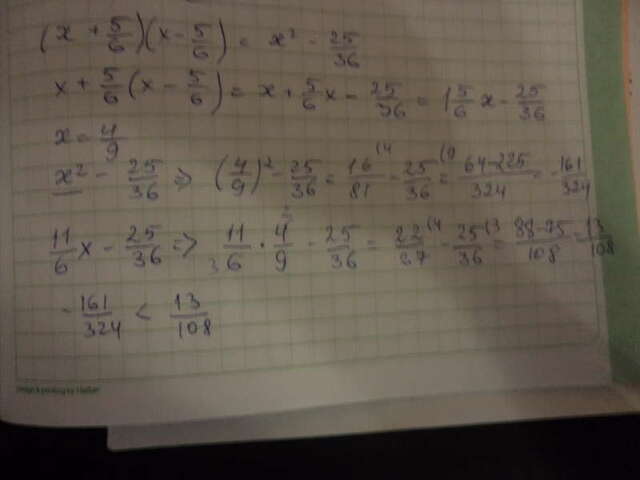 (x + 5/6)(x - 5/6) = x² - 25/36
x + 5/6(x - 5/6) = x + 5/6x - 25/36 = 1 5/6 x - 25/36
x = 4/9
x² - 25/36 ⇒ (4/9)² - 25/36 = 16/81 (4 - 25/36 (9 = 64-225/324 = -161/324
11/6 x - 25/36 ⇒ 11/6 3 · 4/9 2 - 25/36 = 22/27 (4 - 25/36 (3 = 88-75/108 = 13/108
-161/324 < 13/108